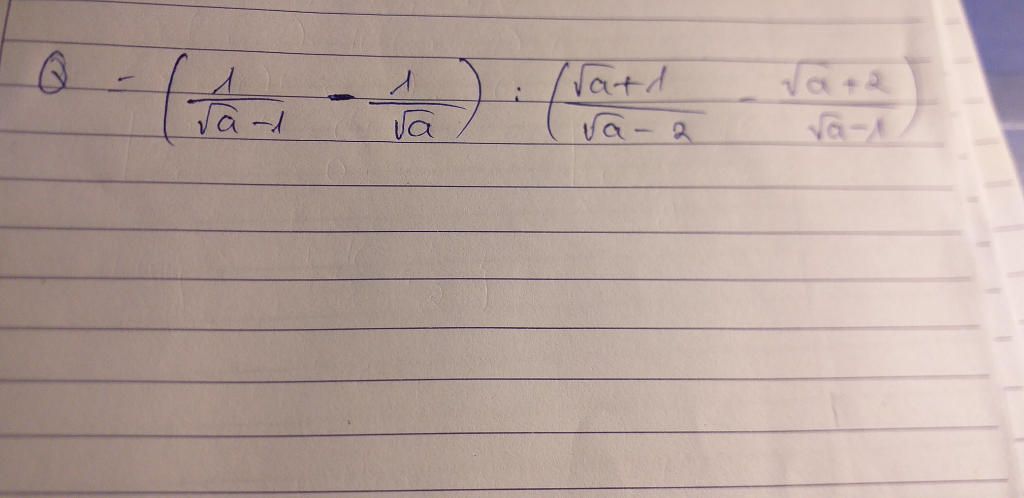 Q = (1/(√a-1) - 1/√a) : ((√a+1)/(√a-2) - (√a+2)/(√a-1))